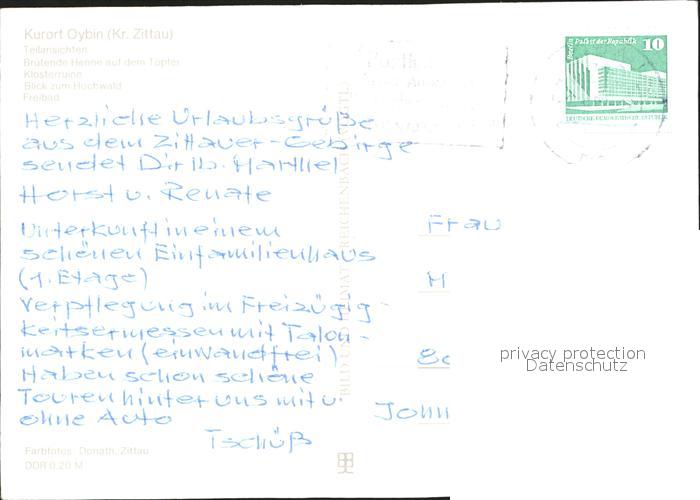 Kurort Oybin (Kr. Zittau)
Teilansichten
Brütende Henne auf dem Töpfer
Klosterruine
Blick zum Hochwald
Freibad
Berlin Palast der Republik 10
DEUTSCHE DEMOKRATISCHE REPUBLIK
Herzliche Urlaubsgrüße
aus dem Zittauer-Gebirge
sendet Dir lb.
Horst u. Renate
Unterkunft in einem
schönen Einfamilienhaus
(1. Etage)
Verpflegung im Freizügig-
keitsermessen mit Talon-
marken (einwandfrei)
Haben schon schöne
Touren hinter uns mit u.
ohne Auto
Tschüß
Frau
H
John
BILD UND HEIMAT REICHENBACH
privacy protection
Datenschutz
Farbfotos: Donath, Zittau
DDR 0,20 M